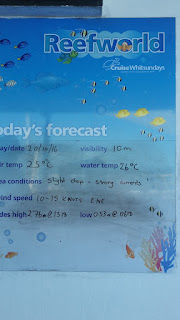 Reefworld
CruiseWhitsundays
oday's forecast
ay/date 20/10/16 visibility 10m
ir temp 25°C water temp 26°C
ea conditions slight chop - strong currents
ind speed 10-15 knots ENE
des high 2.76m @ 1319 low 0.53m @